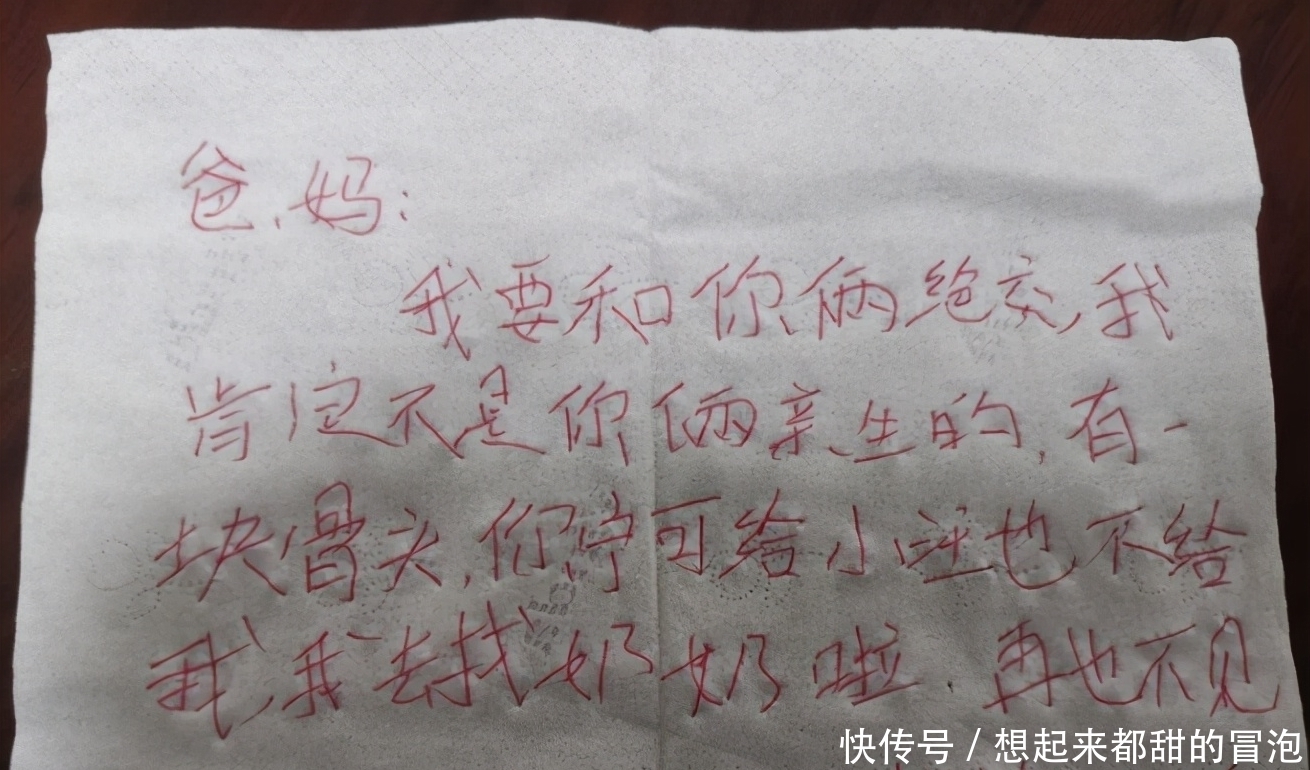 爸、妈:
我要和你俩绝交,我
肯定不是你俩亲生的,有一
块骨头,你们宁可给小汪也不给
我,我去找奶奶啦.再也不见
快传号 / 想起来都甜的冒泡